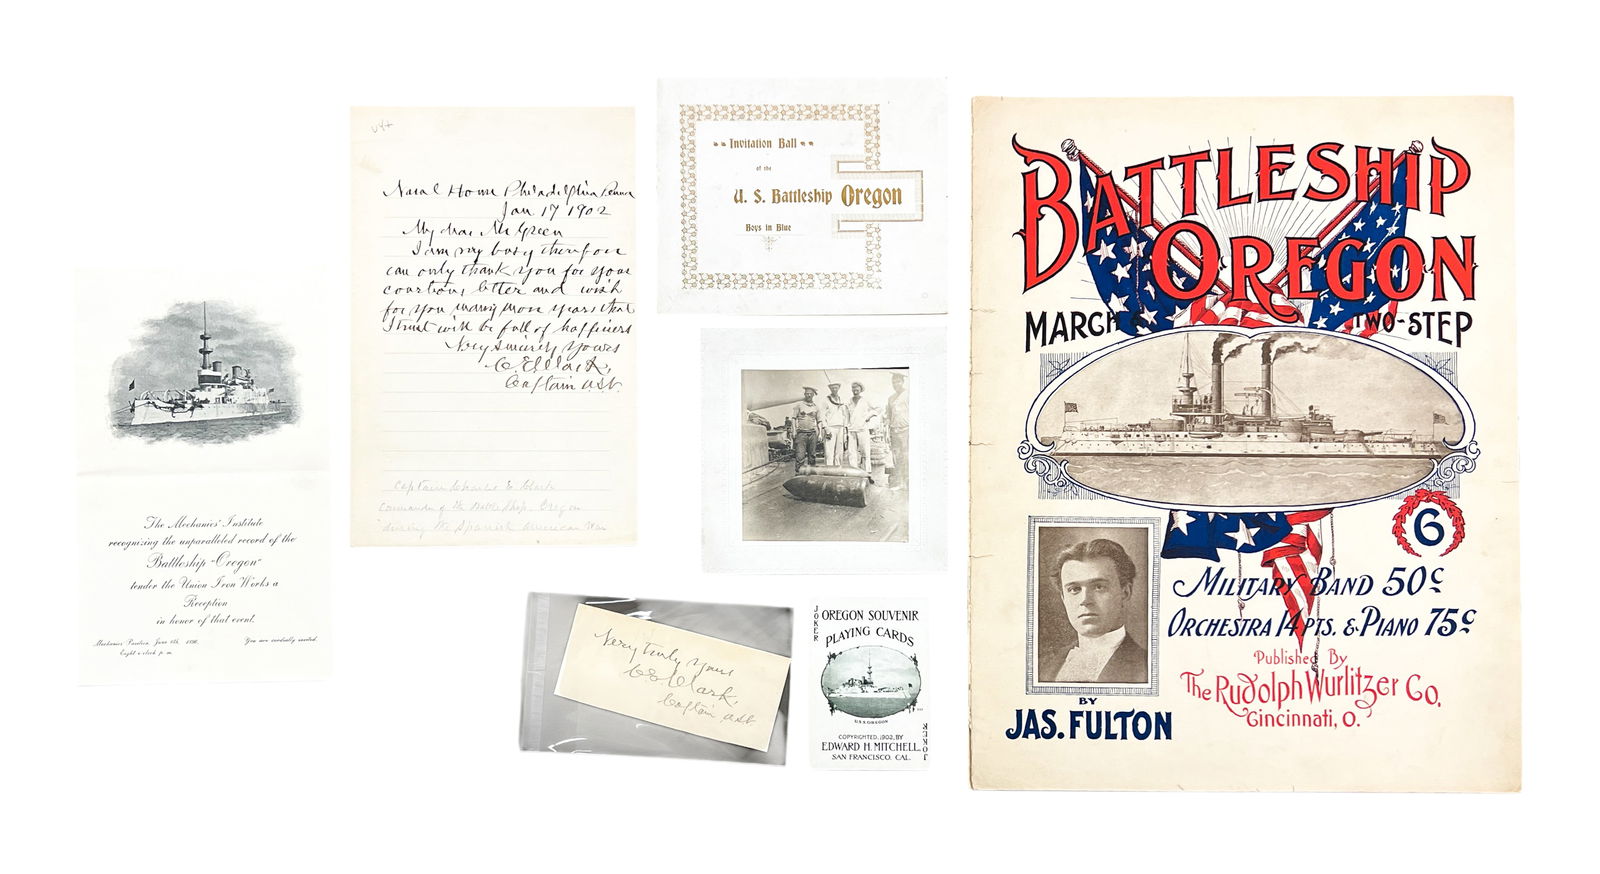 The Mechanics' Institute
recognizing the unparalleled record of the
Battleship "Oregon"
tender the Union Iron Works a
Reception
in honor of that event.
Mechanics' Pavilion, June 8th, 1896.
You are cordially invited.
Eight o'clock p. m.
Naval Home Philadelphia Penna
Jan 17 1902
My dear Mr Green
I am very busy therefore
can only thank you for your
courteous letter and wish
for you many more years that
I trust will be full of happiness
Very sincerely yours
C. E. Clark,
Captain USN.
Captain Charles E. Clark
commander of the Battleship, Oregon
during the Spanish American War
Invitation Ball
of the
U. S. Battleship Oregon
Boys in Blue
Very truly yours
C. E. Clark,
Captain, USN
JOKER
OREGON SOUVENIR
PLAYING CARDS
U.S.S. OREGON
COPYRIGHTED, 1902, BY
EDWARD H. MITCHELL.
SAN FRANCISCO, CAL.
JOKER
BATTLESHIP
OREGON
MARCH & TWO-STEP
6
MILITARY BAND 50¢
ORCHESTRA 14 PTS. & PIANO 75¢
Published By
The Rudolph Wurlitzer Co.
Cincinnati, O.
BY
JAS. FULTON